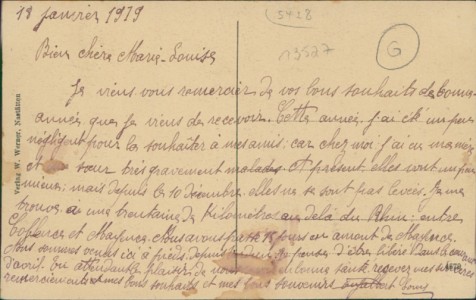 18 janvier 1919
5428
13527
G
Bien chère Marie-Louise
Je viens vous remercier de vos bons souhaits de bonne
année que je viens de recevoir. Cette année, j'ai été un peu
négligent pour la souhaiter à mes amis; car chez moi j'ai eu ma mère
et sœur très gravement malades. A présent elles vont un peu
mieux; mais depuis le 10 décembre, elles ne se sont pas levées. Je me
trouve à une trentaine de kilomètres au delà du Rhin; entre
Coblence et Mayence. Nous avons passé 15 jours en amont de Mayence.
Nous sommes venus ici à pieds. Je pense d'être libéré dans le courant
d'avril. En attendant le plaisir de bonne santé recevez mes sincères
remerciements mes bons souhaits et mes bons souvenirs
Verlag W. Werner, Nastätten